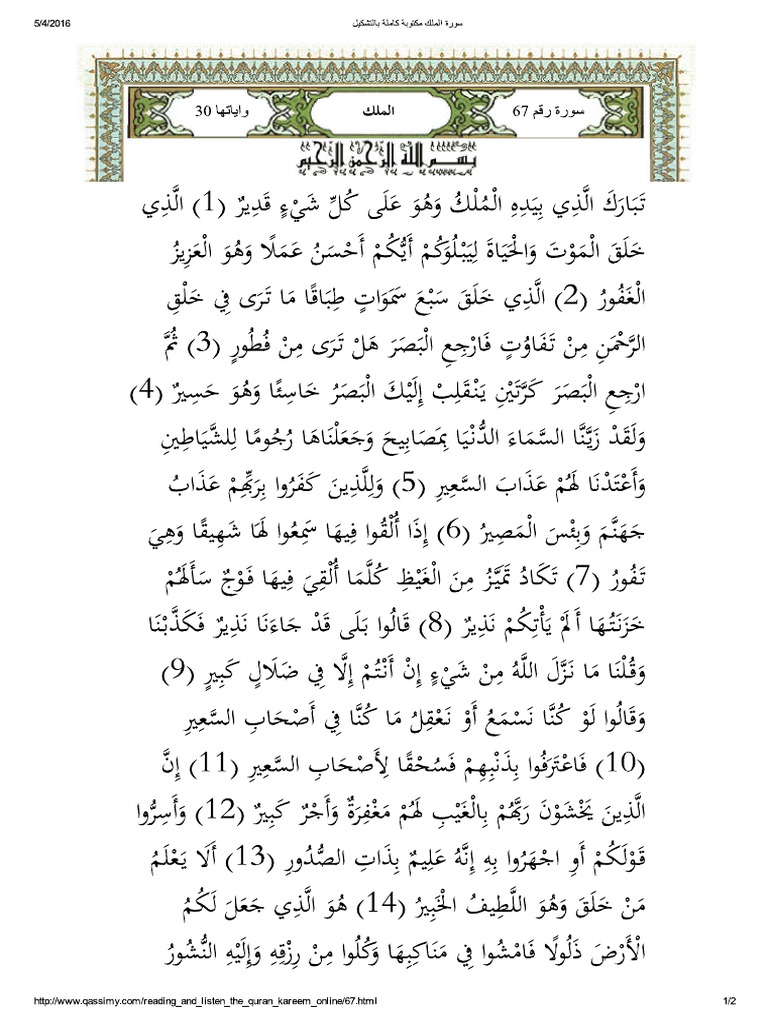 5/4/2016 سورة الملك مكتوبة كاملة بالتشكيل
سورة رقم 67 الملك واياتها 30
بسم الله الرحمن الرحيم
تَبَارَكَ الَّذِي بِيَدِهِ الْمُلْكُ وَهُوَ عَلَى كُلِّ شَيْءٍ قَدِيرٌ (1) الَّذِي
خَلَقَ الْمَوْتَ وَالْحَيَاةَ لِيَبْلُوَكُمْ أَيُّكُمْ أَحْسَنُ عَمَلًا وَهُوَ الْعَزِيزُ
الْغَفُورُ (2) الَّذِي خَلَقَ سَبْعَ سَمَوَاتٍ طِبَاقًا مَا تَرَى فِي خَلْقِ
الرَّحْمَنِ مِنْ تَفَاوُتٍ فَارْجِعِ الْبَصَرَ هَلْ تَرَى مِنْ فُطُورٍ (3) ثُمَّ
ارْجِعِ الْبَصَرَ كَرَّتَيْنِ يَنْقَلِبْ إِلَيْكَ الْبَصَرُ خَاسِئًا وَهُوَ حَسِيرٌ (4)
وَلَقَدْ زَيَّنَّا السَّمَاءَ الدُّنْيَا بِمَصَابِيحَ وَجَعَلْنَاهَا رُجُومًا لِلشَّيَاطِينِ
وَأَعْتَدْنَا لَهُمْ عَذَابَ السَّعِيرِ (5) وَلِلَّذِينَ كَفَرُوا بِرَبِّهِمْ عَذَابُ
جَهَنَّمَ وَبِئْسَ الْمَصِيرُ (6) إِذَا أُلْقُوا فِيهَا سَمِعُوا لَهَا شَهِيقًا وَهِيَ
تَفُورُ (7) تَكَادُ تَمَيَّزُ مِنَ الْغَيْظِ كُلَّمَا أُلْقِيَ فِيهَا فَوْجٌ سَأَلَهُمْ
خَزَنَتُهَا أَلَمْ يَأْتِكُمْ نَذِيرٌ (8) قَالُوا بَلَى قَدْ جَاءَنَا نَذِيرٌ فَكَذَّبْنَا
وَقُلْنَا مَا نَزَّلَ اللَّهُ مِنْ شَيْءٍ إِنْ أَنْتُمْ إِلَّا فِي ضَلَالٍ كَبِيرٍ (9)
وَقَالُوا لَوْ كُنَّا نَسْمَعُ أَوْ نَعْقِلُ مَا كُنَّا فِي أَصْحَابِ السَّعِيرِ
(10) فَاعْتَرَفُوا بِذَنْبِهِمْ فَسُحْقًا لِأَصْحَابِ السَّعِيرِ (11) إِنَّ
الَّذِينَ يَخْشَوْنَ رَبَّهُمْ بِالْغَيْبِ لَهُمْ مَغْفِرَةٌ وَأَجْرٌ كَبِيرٌ (12) وَأَسِرُّوا
قَوْلَكُمْ أَوِ اجْهَرُوا بِهِ إِنَّهُ عَلِيمٌ بِذَاتِ الصُّدُورِ (13) أَلَا يَعْلَمُ
مَنْ خَلَقَ وَهُوَ اللَّطِيفُ الْخَبِيرُ (14) هُوَ الَّذِي جَعَلَ لَكُمُ
الْأَرْضَ ذَلُولًا فَامْشُوا فِي مَنَاكِبِهَا وَكُلُوا مِنْ رِزْقِهِ وَإِلَيْهِ النُّشُورُ
http://www.qassimy.com/reading_and_listen_the_quran_kareem_online/67.html 1/2